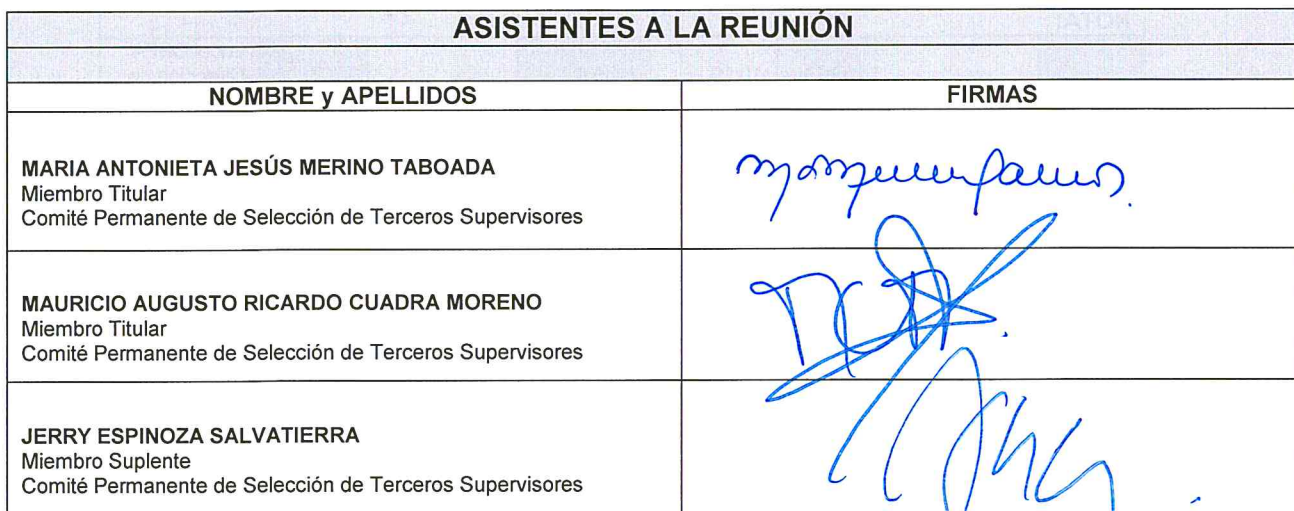 ASISTENTES A LA REUNIÓN
NOMBRE y APELLIDOS
FIRMAS
MARIA ANTONIETA JESÚS MERINO TABOADA
Miembro Titular
Comité Permanente de Selección de Terceros Supervisores
MAURICIO AUGUSTO RICARDO CUADRA MORENO
Miembro Titular
Comité Permanente de Selección de Terceros Supervisores
JERRY ESPINOZA SALVATIERRA
Miembro Suplente
Comité Permanente de Selección de Terceros Supervisores